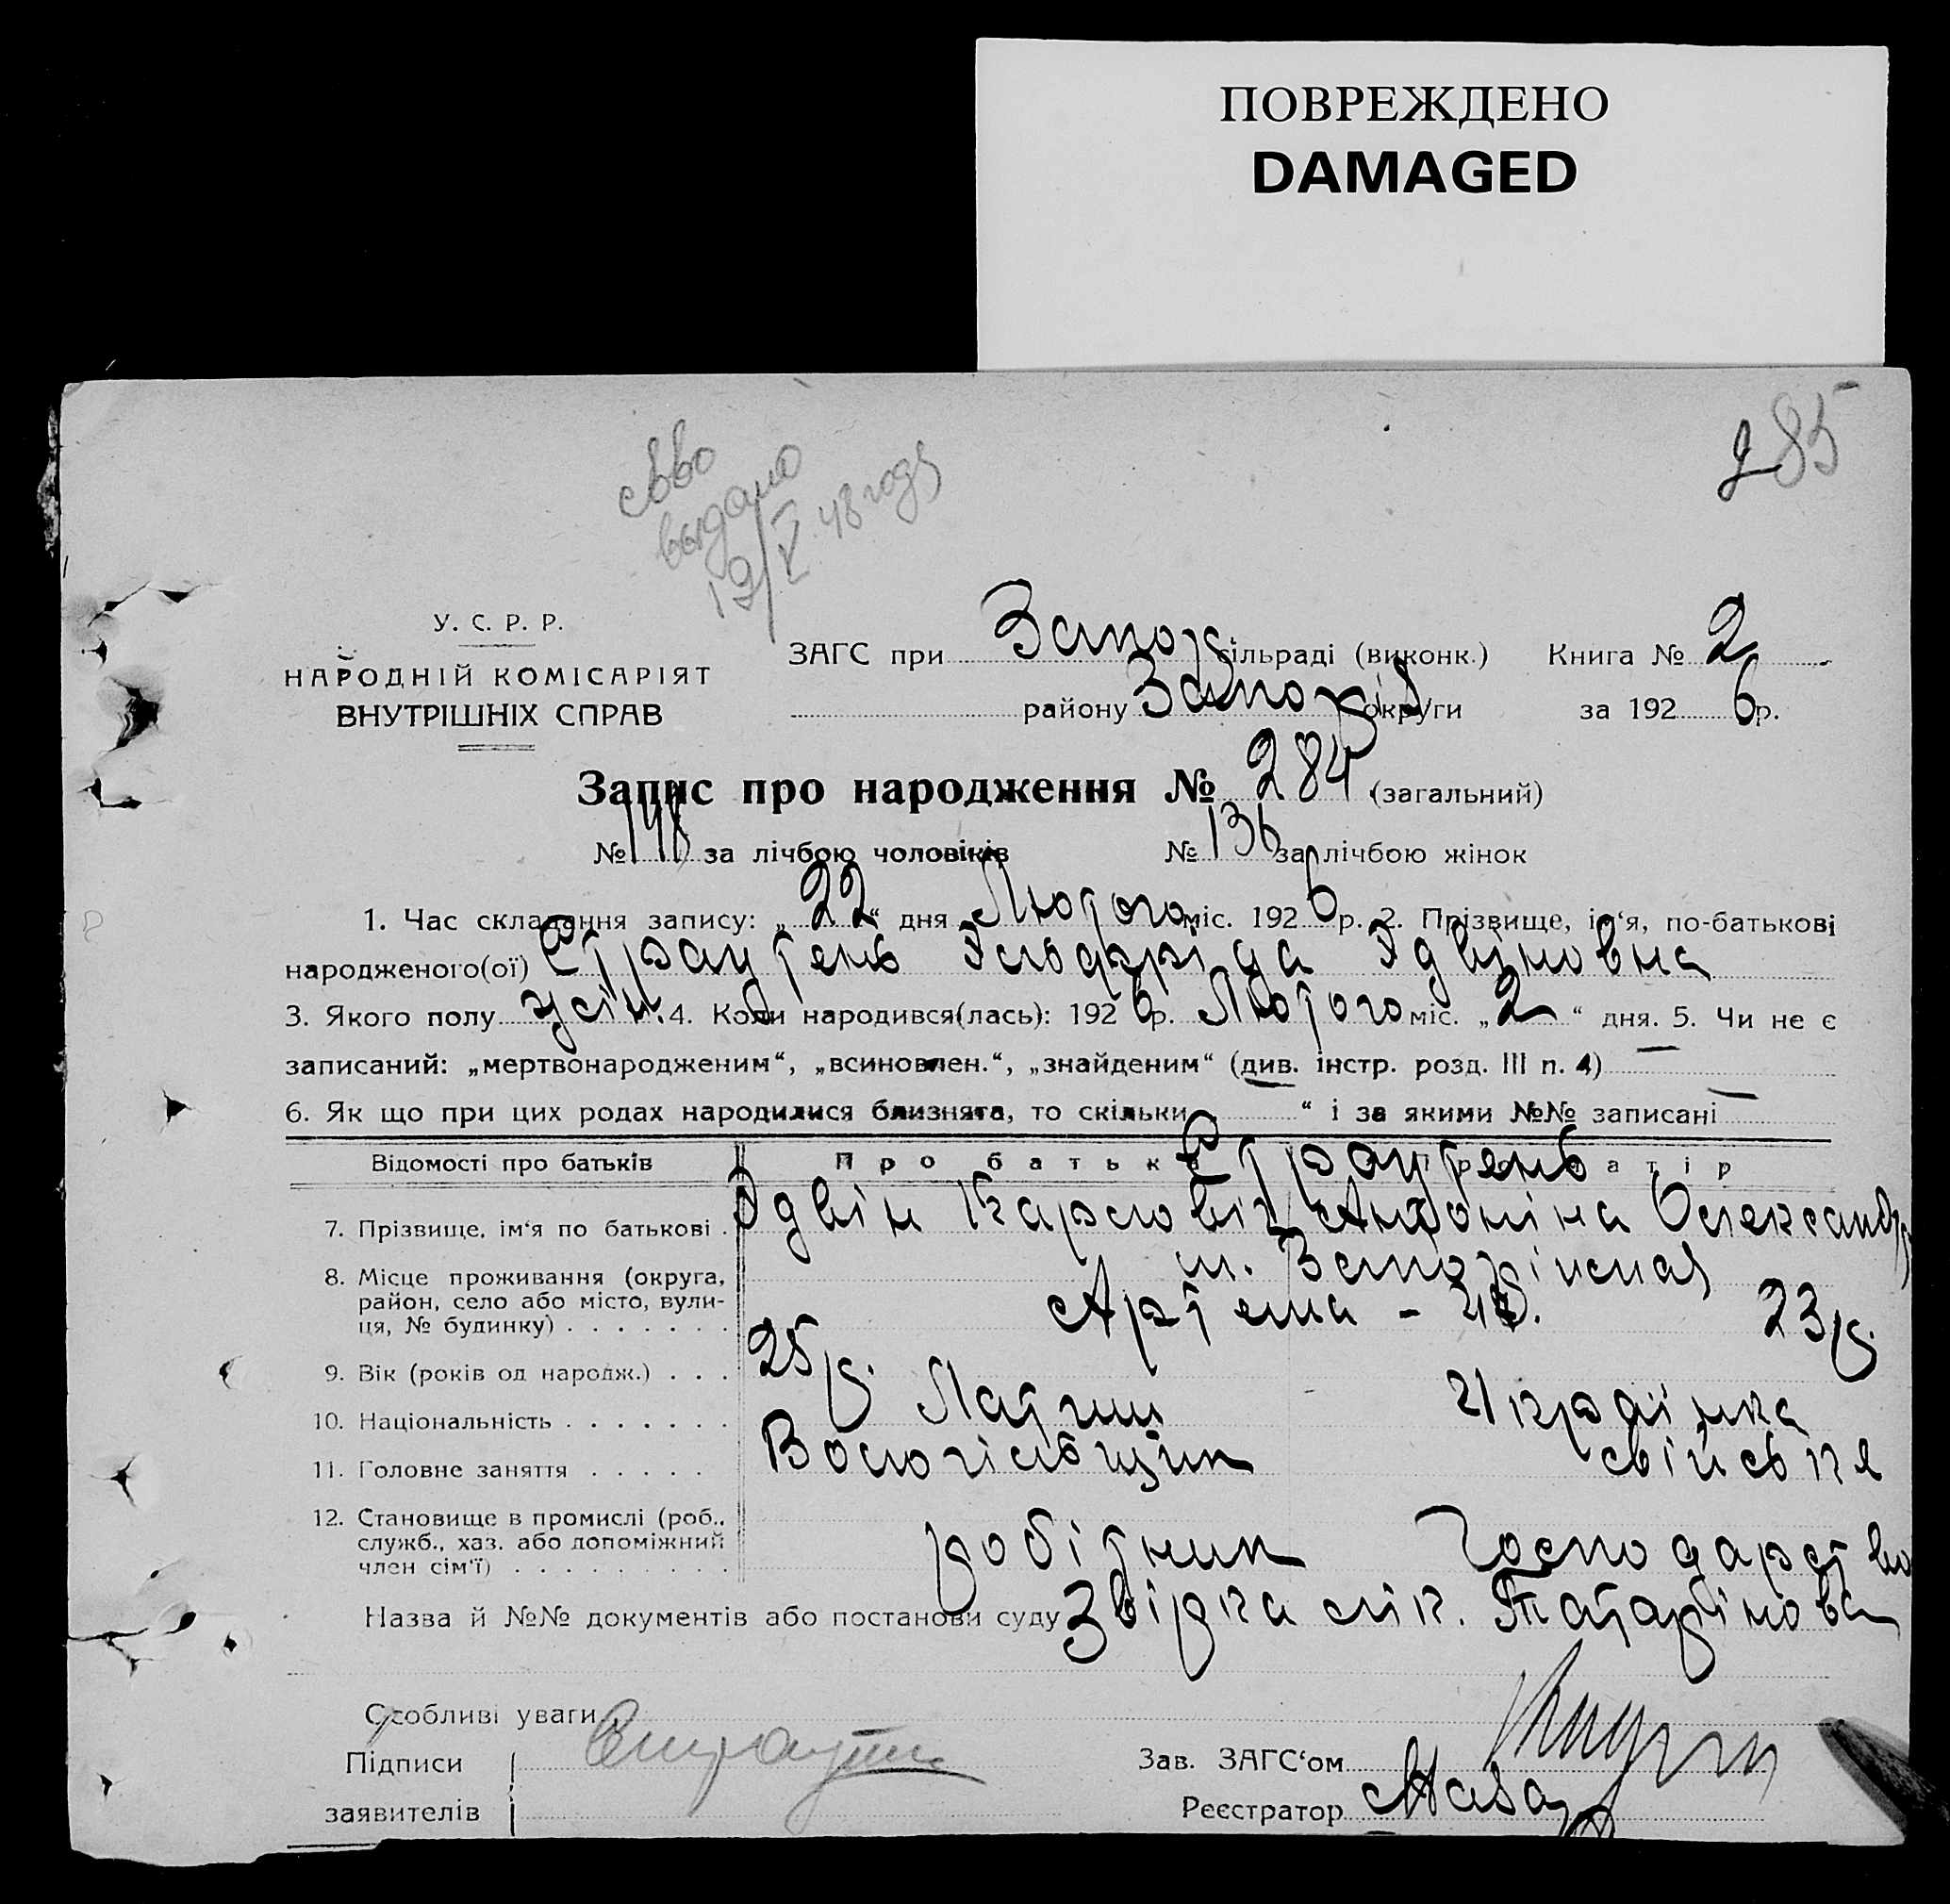 ПОВРЕЖДЕНО
DAMAGED
285
выдано
19/V 48 году
У. С. Р. Р.
НАРОДНІЙ КОМІСАРІЯТ
ВНУТРІШНІХ СПРАВ
ЗАГС при Запор сільраді (виконк.) Книга № 2
району Запоріз округи за 1926р.
Запис про народження № 284 (загальний)
№ 148 за лічбою чоловіків № 136 за лічбою жінок
1. Час складання запису: „22“ дня Лютого міс. 1926р. 2. Прізвище, ім‘я, по-батькові
народженого(ої) Страутень Эльфріда Эдвіновна
3. Якого полу жін. 4. Коли народився(лась): 1926р. Лютого міс. „2“ дня. 5. Чи не є
записаний: „мертвонародженим“, „всиновлен.“, „знайденим“ (див. інстр. розд. III п. 4) —
6. Як що при цих родах народилися близнята, то скільки — “ і за якими №№ записані —
Відомості про батьків Про батька Про матір
Страутень
7. Прізвище, ім‘я по батькові . Эдвін Карлович Антоніна Олександр
8. Місце проживання (округа, район, село або місто, вулиця, № будинку) м. Запоріжжя
Артема -
9. Вік (років од народж.) . . . 25 р. 23 р.
10. Національність . . . . . . . Латиш Українка
11. Головне заняття . . . . . Вологільщик свійське
12. Становище в промислі (роб., служб., хаз. або допоміжний член сім‘ї) робітник Господарство
Назва й №№ документів або постанови суду Звірка лік. Татарінова
Особливі уваги
Підписи
заявителів
Зав. ЗАГС‘ом
Реєстратор